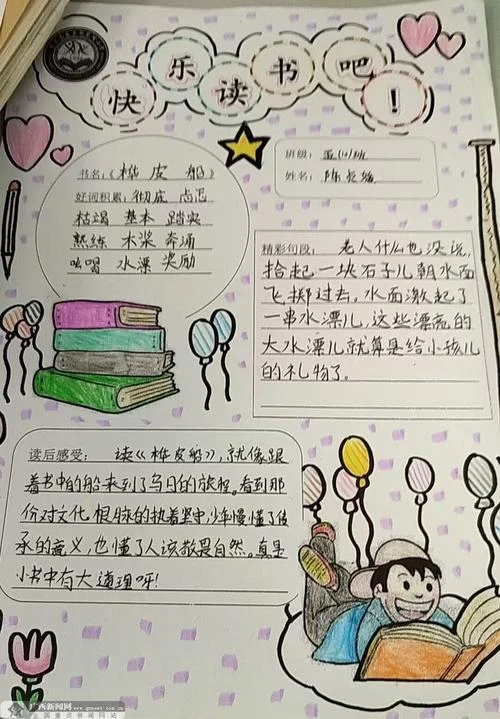 快乐读书吧！
书名：《桦皮船》
好词积累：彻底 忐忑
枯竭 基本 踏实
熟练 木桨 奔涌
吆喝 水漂 奖励
班级：五(10)班
姓名：陈
精彩句段：老人什么也没说，
拾起一块石子儿朝水面
飞掷过去。水面激起了
一串水漂儿，这些漂亮的
大水漂儿就算是给小孩儿
的礼物了。
读后感受：读《桦皮船》，就像跟
着书中的船来到了乌日的旅程。看到那
份对文化、根脉的执着坚守少年慢懂了传
承的意义，也懂了人该敬畏自然。真是
小书中有大道理呀！
广西新闻网
www.gxnews.com.cn
全国重点新闻网站